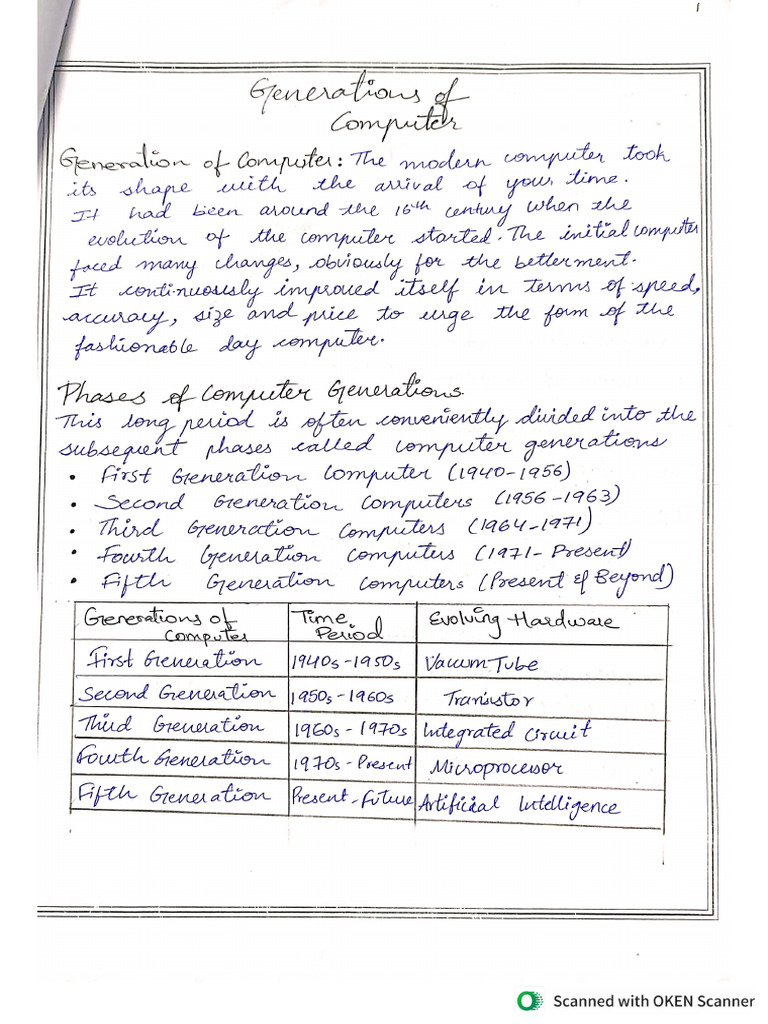 1
Generations of
Computer
Generation of Computer: The modern computer took
its shape with the arrival of your time.
It had been around the 16th century when the
evolution of the computer started. The initial computer
faced many changes, obviously for the betterment.
It continuously improved itself in terms of speed,
accuracy, size and price to urge the form of the
fashionable day computer.
Phases of Computer Generations.
This long period is often conveniently divided into the
subsequent phases called computer generations
• First Generation Computer (1940-1956)
• Second Generation Computers (1956-1963)
• Third Generation Computers (1964-1971)
• Fourth Generation Computers (1971- Present
• Fifth Generation Computers (Present & Beyond)
Generations of Computer | Time Period | Evolving Hardware
First Generation | 1940s-1950s | Vacum Tube
Second Generation | 1950s-1960s | Transistor
Third Generation | 1960s-1970s | Integrated Circuit
Fourth Generation | 1970s-Present | Microprocessor
Fifth Generation | Present-Future | Artificial Intelligence
Scanned with OKEN Scanner